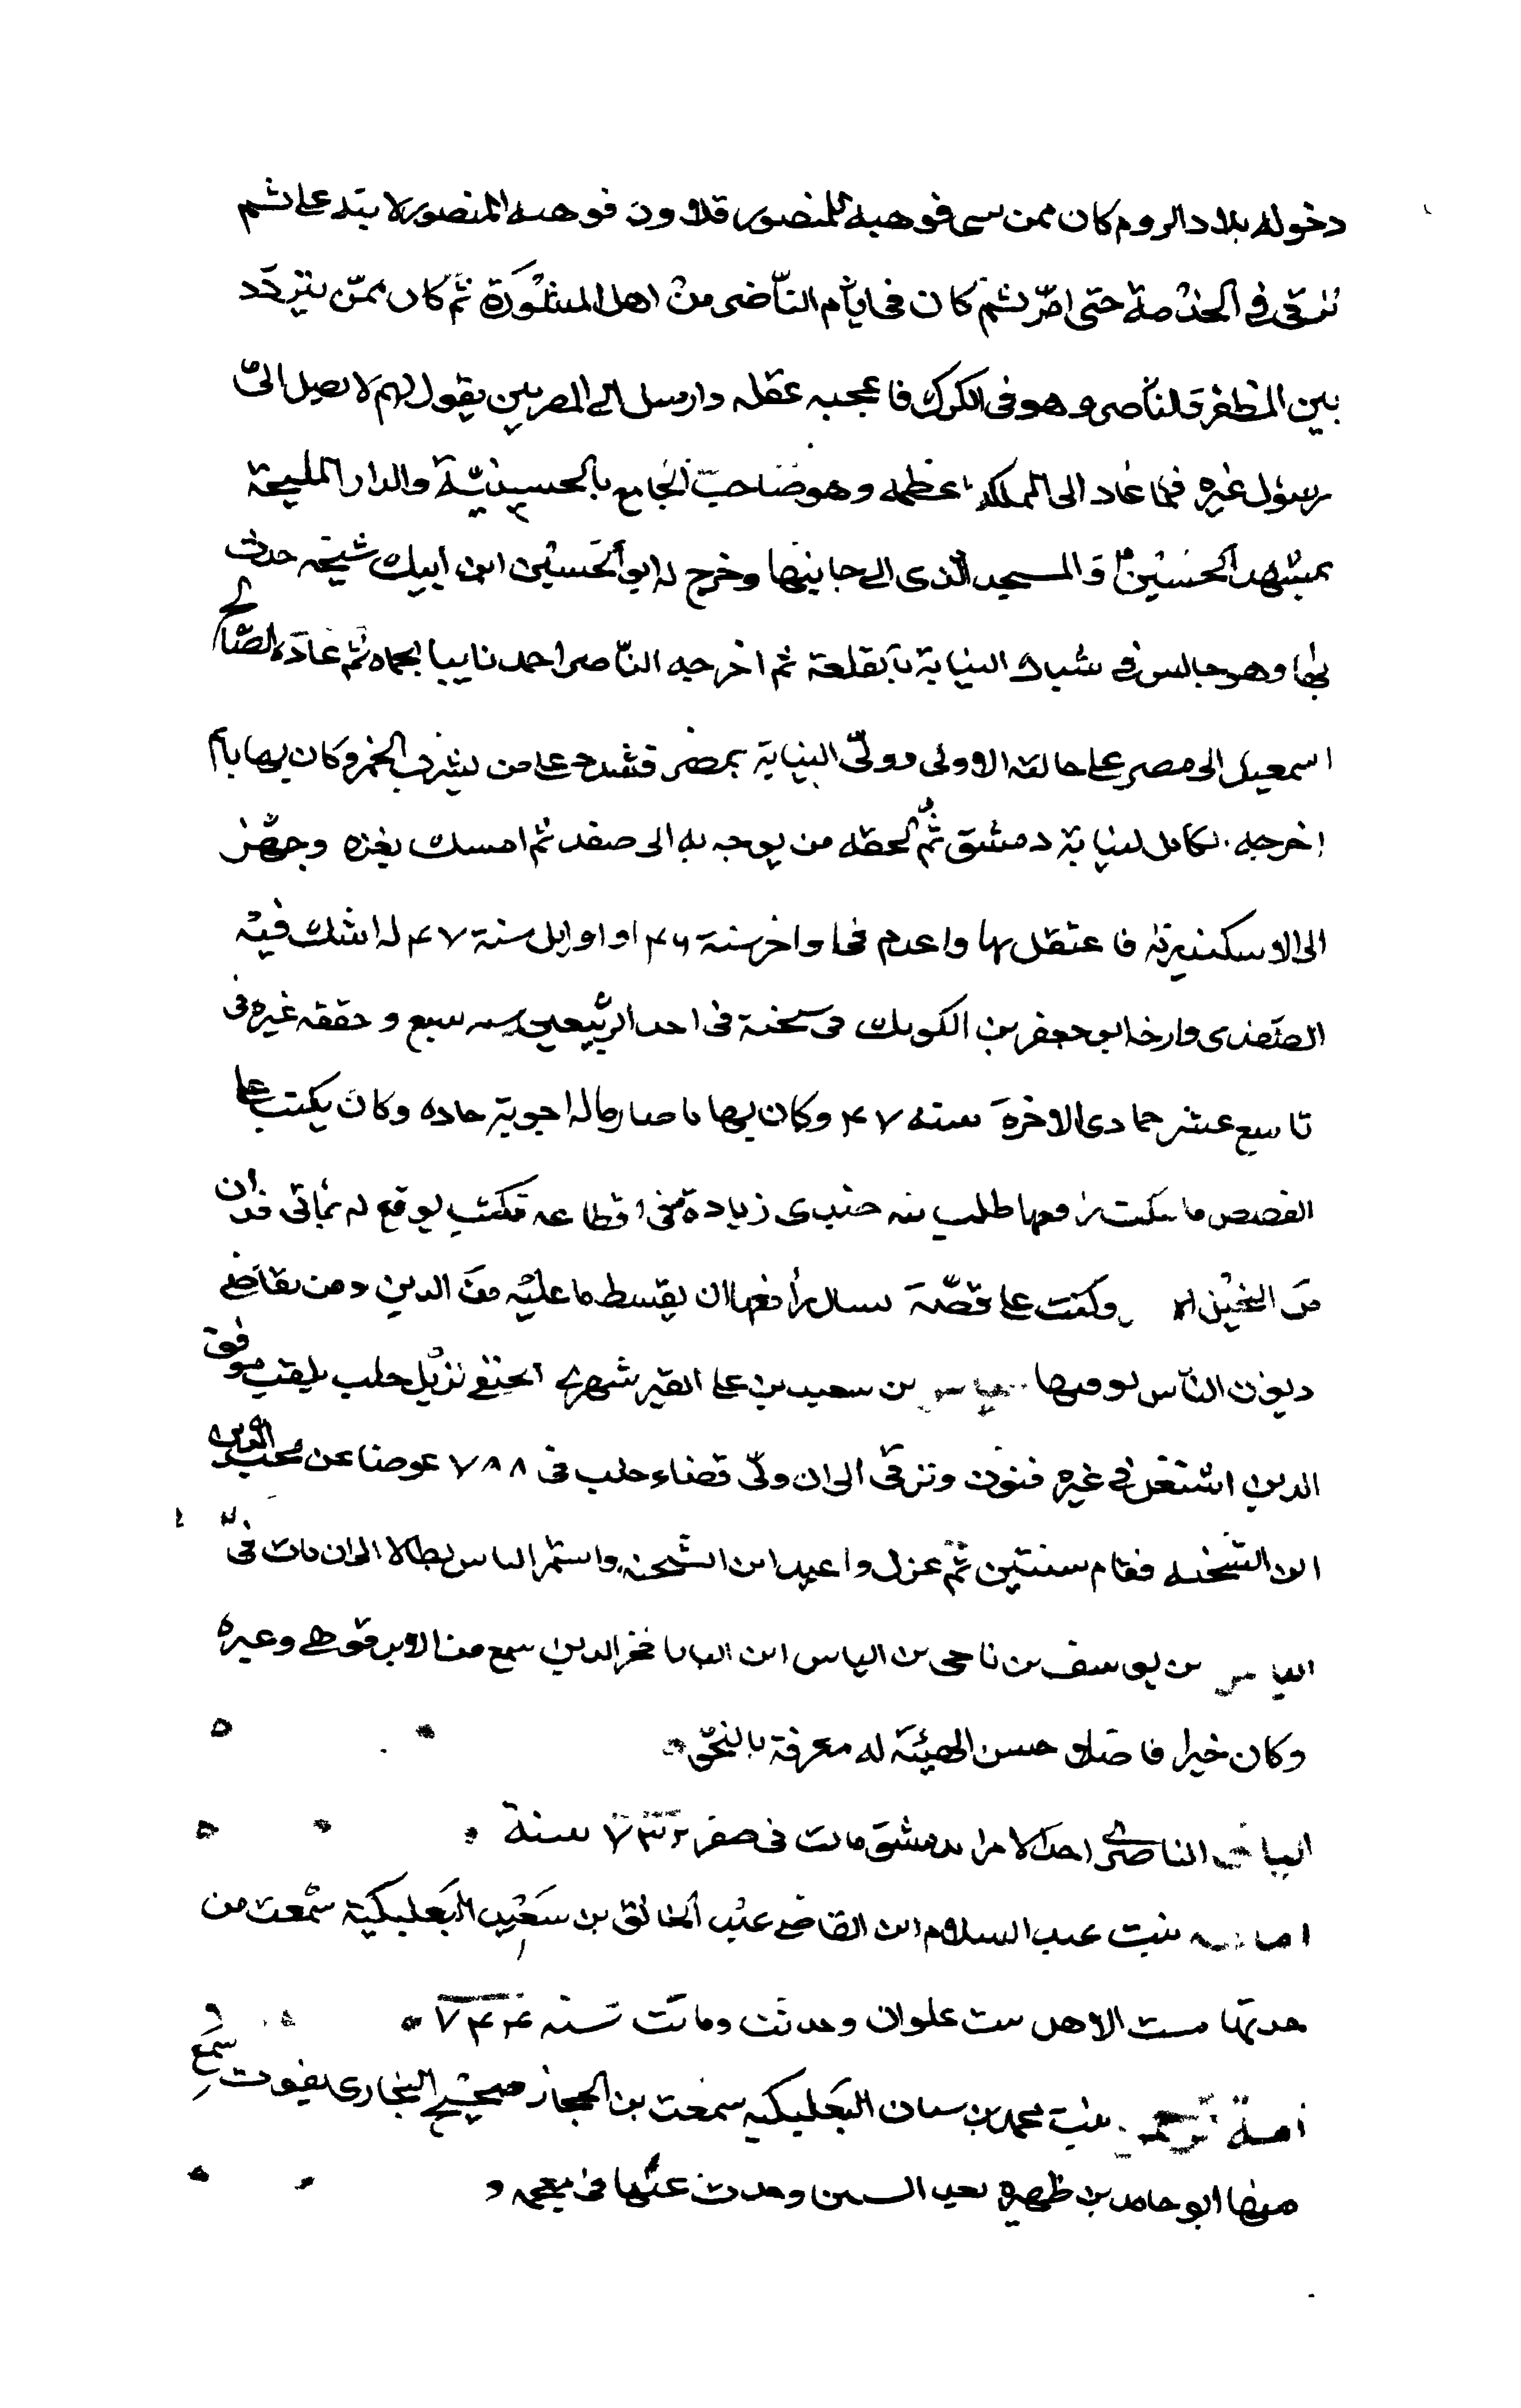 دخوله بلاد الروم كان ممن سبى فوهبه للمنصور قلاوون فوهبه المنصور لابنه على ثم
ترقى فى الخدمة حتى امّر ثم كان فى ايام الناصر من اهل المشورة ثم كان ممّن يتردّد
بين المظفر والناصر وهو فى الكرك فاعجبه عقله وارسل الى المصريين يقول لهم لا يصل الىّ
رسول غيره فلما عاد الى المملكه عظمه وهو صاحب الجامع بالحسينيّة والدار المليحة
بمشهد الحسين والمسجد الذى الى جانبها وخرج له ابو الحسين ابن ايبك مشيخه حدث
بها وهو جالس فى شباك النيابة بالقلعة ثم اخرجه الناصر احمد نايبا بحماه ثم عاده الصالح
اسمعيل الى مصر على حالته الاولى وولى النيابة بمصر فشدد على من يشرب الخمر وكان بها ثم
اخرجه الكامل لنيابة دمشق ثم لحقه من يوجه به الى صفد ثم امسك بغزه وجهز
الى الاسكندرية فاعتقل بها واعدم فى اواخر سنة ۴۶ او اوايل سنة ۴۷ شك فيه
الصفدى وارخه ابو جعفر بن الكويك فى سجنه فى احد الربيعين سنه سبع وحققه غيره فى
تاسع عشر جمادى الاخرة سنه ۴۷ وكان صارما له اجوبة حاده وكان يكتب على
القصص طلب منه جندى زيادة فى اقطاعه فكتب يوقع له
من وكتب على قصّة يسال رافعها ان يقسط ما عليه من الدين ومن
ديون الناس الياس بن سعيد بن على القيرشهرى الحنفى نزيل حلب يلقب موفق
الدين اشتغل فى غيره فنون وترقى الى ان ولى قضاء حلب فى ۷۸۸ عوضا عن محب الدين
ابن الشحنه فقام سنتين ثم عزل واعيد ابن الشحنه واستمر الياس بطالا الى ان مات فى
الياس بن يوسف بن ناجى بن الياس ابن البابا فخر الدين سمع من الابرقوهى وغيره
وكان خيرا فاضلا حسن الهيئة له معرفة بالنحو
الناصرى احد الامرا بدمشق مات فى صفر ۷۳۲ سنة
بنت عبد السلام ابن القاضى عبد الخالق بن سعيد البعلبكية سمعت من
جدتها ست الاهل بنت علوان وحدثت وماتت سنه ۷۴۴
امة الرحيم بنت محمد بن البعلبكيه سمعت بن الحجار صحيح البخارى بفوت سمع
منها ابو حامد بن ظهيره بعيد الستين وحدث عنها فى معجمه